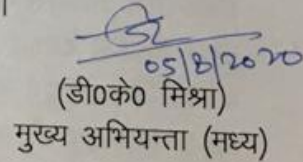 05/8/2020
(डी0के0 मिश्रा)
मुख्य अभियन्ता (मध्य)